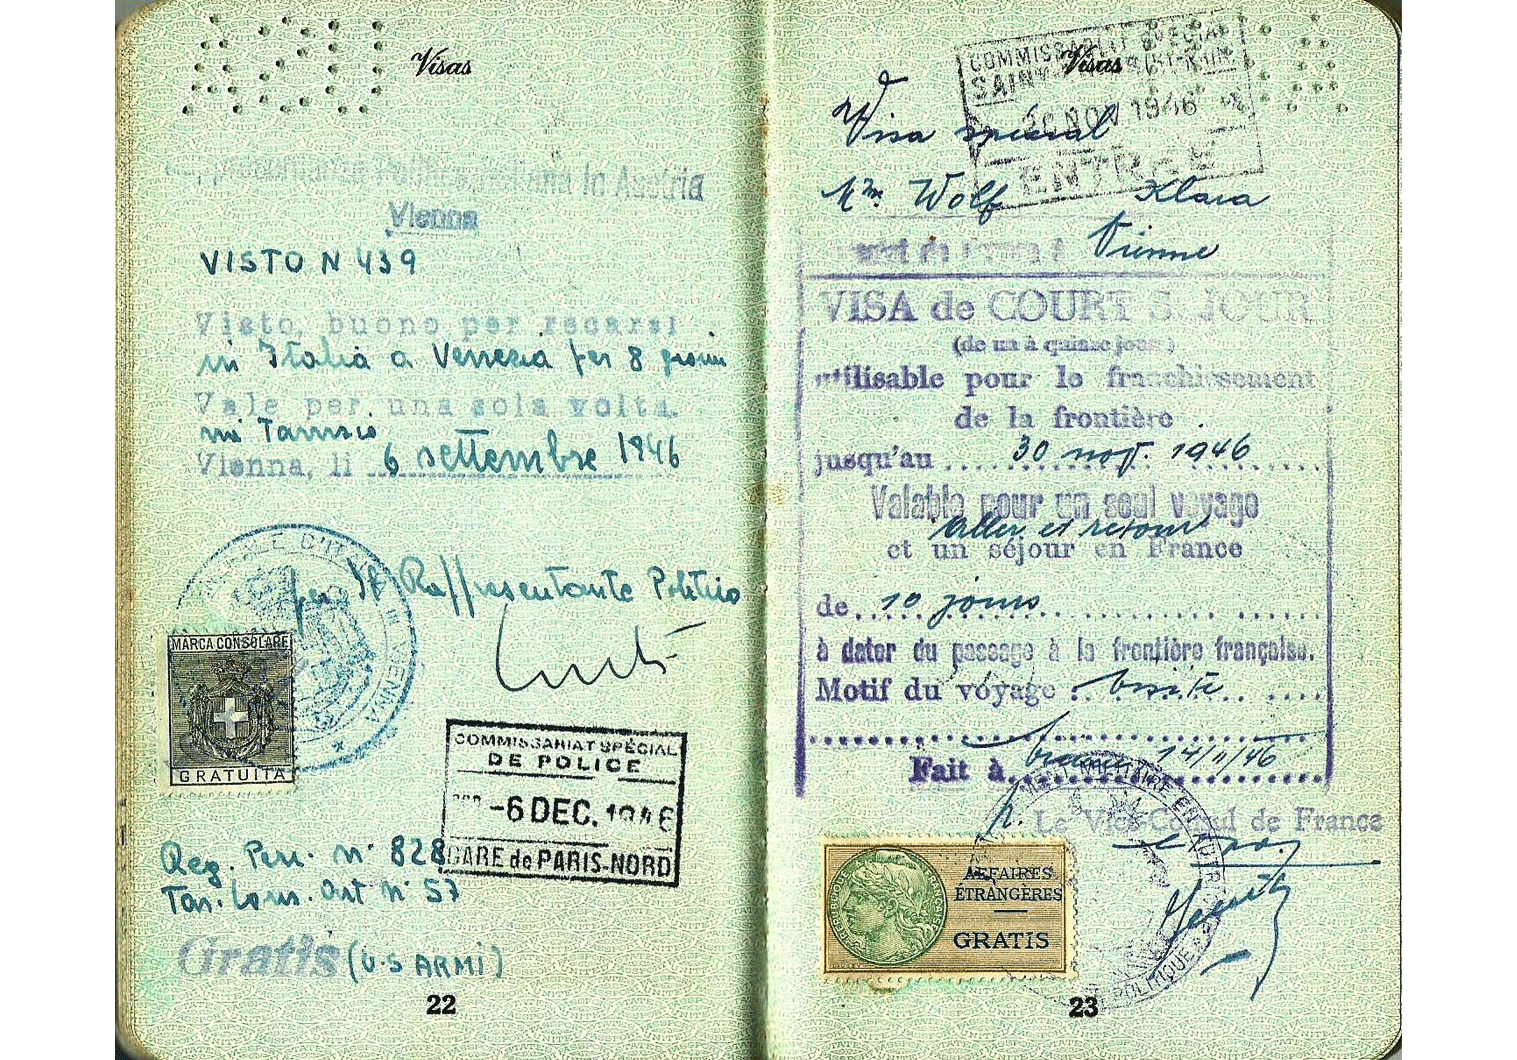 Visas
in Austria
Vienna
VISTO N 439
Visto, buono per recarsi
in Italia a Venezia per 8 giorni
Vale per una sola volta.
Vienna, li 6 settembre 1946
D'ITALIA IN VIENNA
per Il Rappresentante Politico
MARCA CONSOLARE
GRATUITA
COMMISSARIAT SPÉCIAL
DE POLICE
-6 DEC. 1946
GARE de PARIS-NORD
Reg. Perc. n° 828
Tar. Cons. Art n° 57
Gratis (U·S ARMI)
22
Visas
COMMISSARIAT SPÉCIAL
SAINT-
NOV 1946
ENTRÉE
Visa spécial
Mme Wolf Klara
à Vienne
VISA de COURT SÉJOUR
(de un à quinze jours)
utilisable pour le franchissement
de la frontière
jusqu'au 30 nov. 1946
Valable pour un seul voyage
aller et retour
et un séjour en France
de 10 jours
à dater du passage à la frontière française.
Motif du voyage : visite
Fait à 14/11/46
p. Le Vice-Consul de France
MILITAIRE EN AUTR
POLITIQUE
AFFAIRES
ÉTRANGÈRES
GRATIS
23